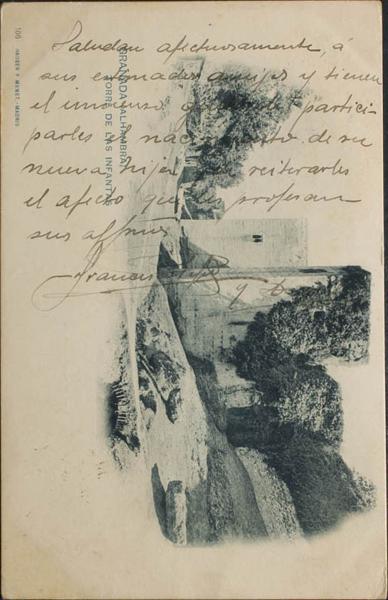 Saludan afectuosamente, á
sus estimados amigos y tienen
el inmenso gusto de partici-
parles el nacimiento de su
nueva hija, y reiterarles
el afecto que les profesan
sus affmos
Francisco y
GRANADA (ALHAMBRA)
TORRE DE LAS INFANTAS
106 HAUSER Y MENET.-MADRID